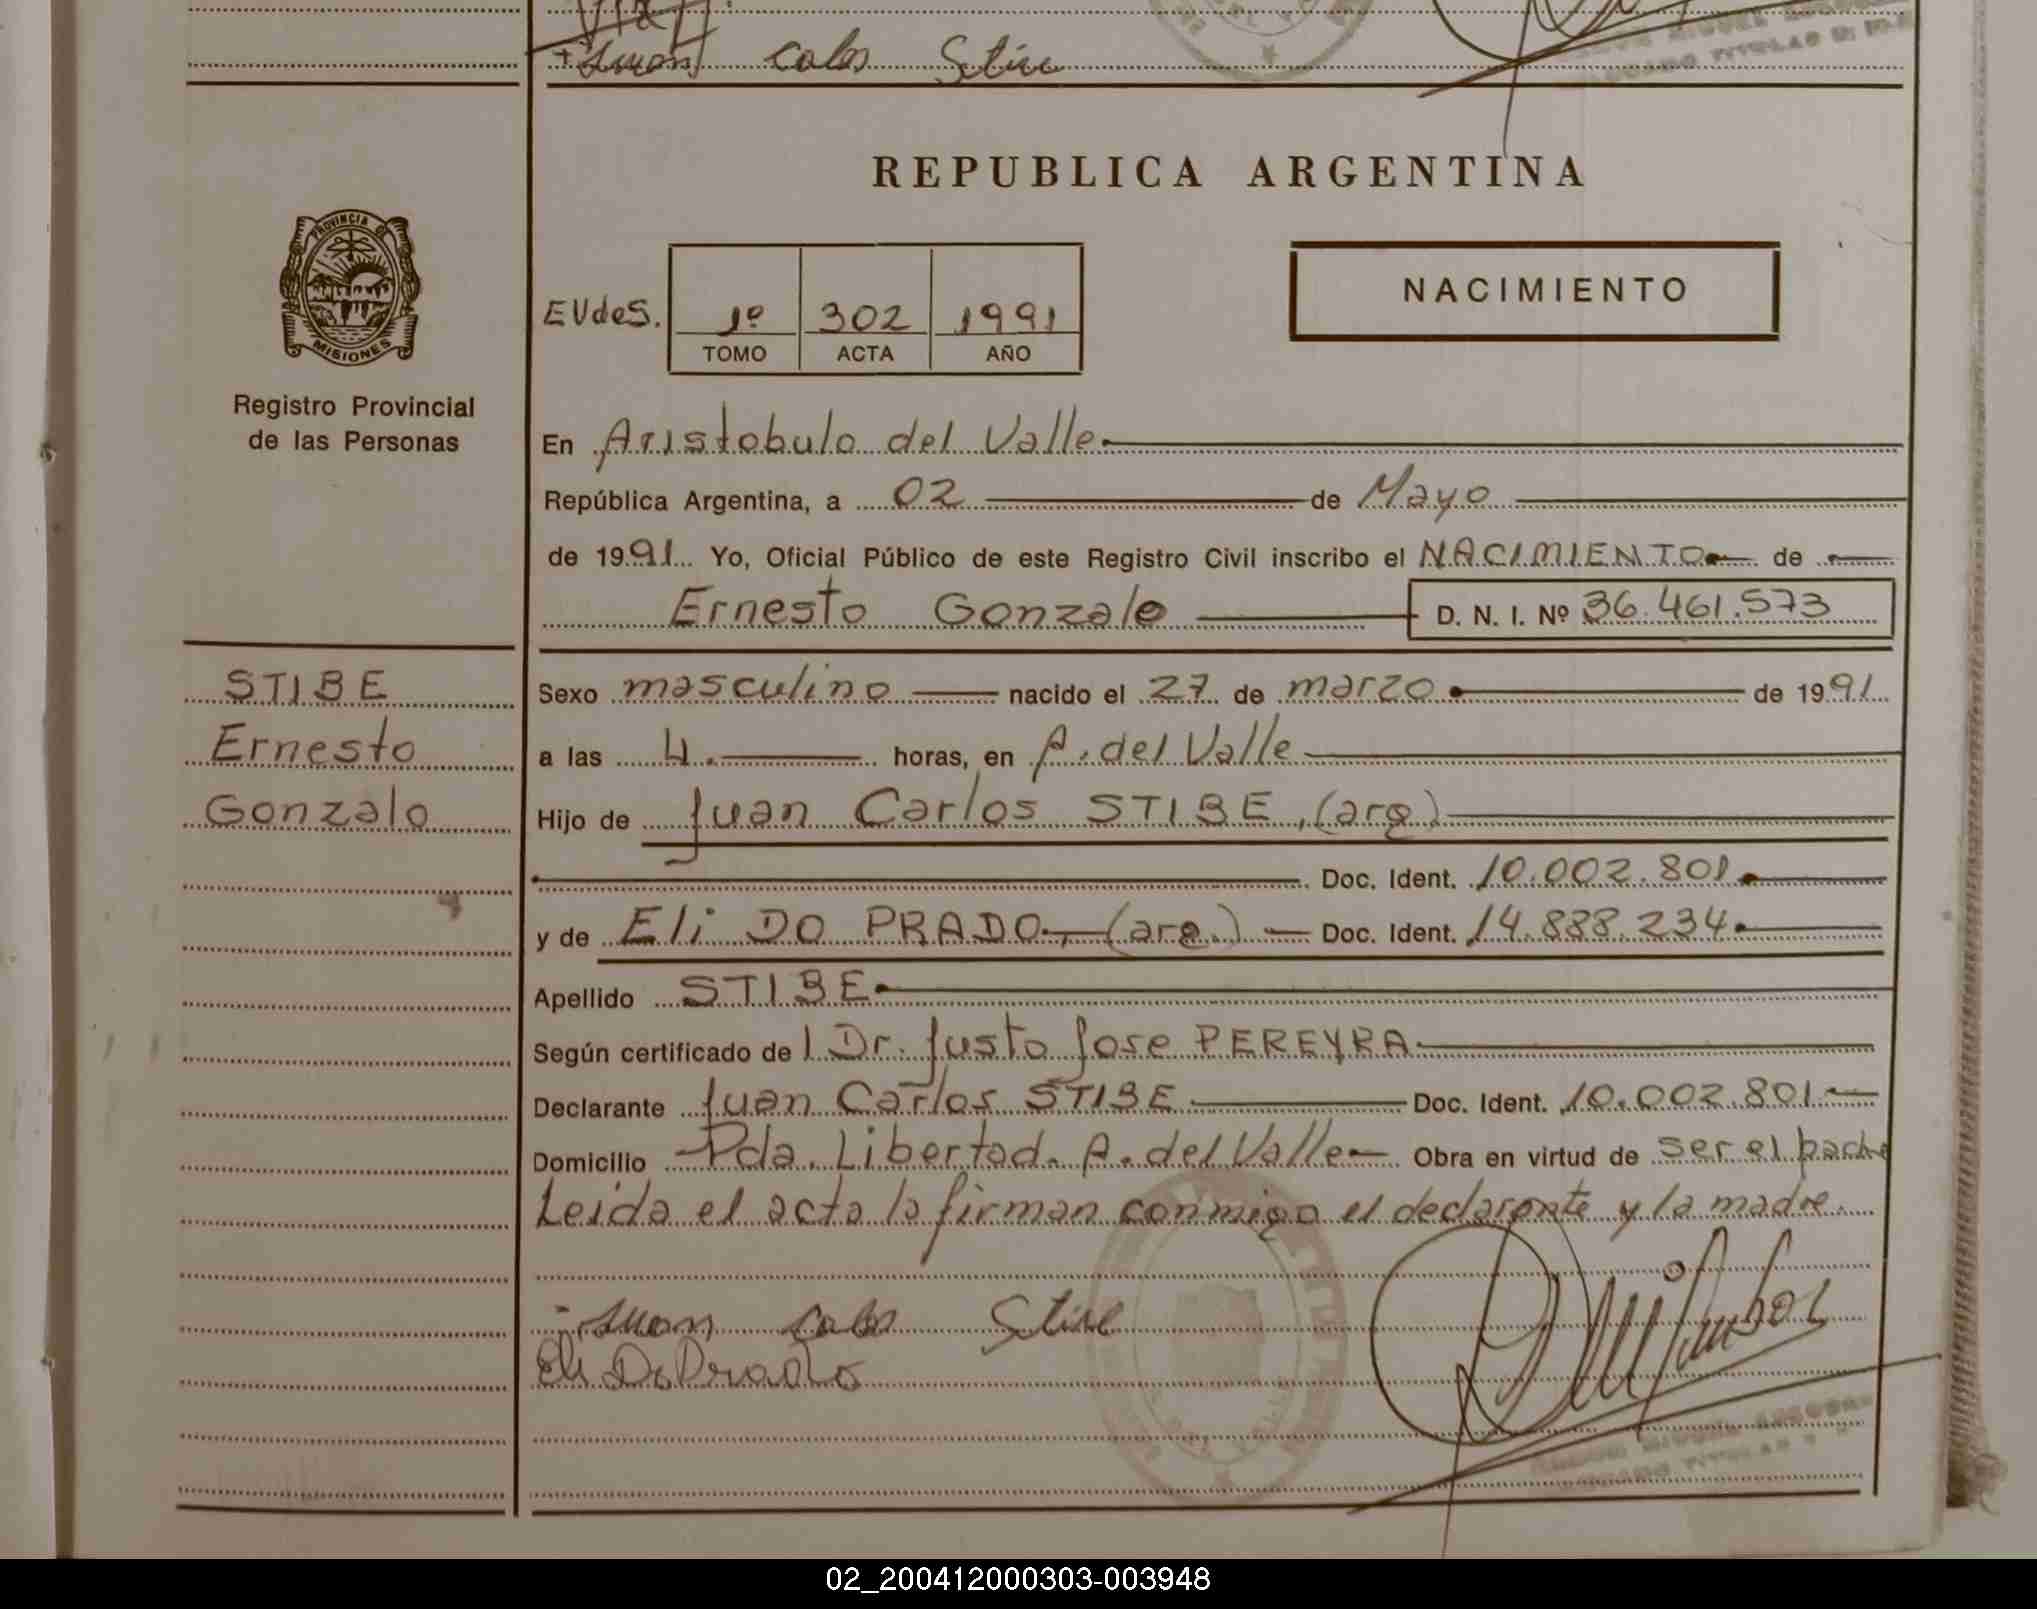 Juan Calos Stive
REPUBLICA ARGENTINA
PROVINCIA DE
MISIONES
Registro Provincial
de las Personas
NACIMIENTO
EVdeS. 1º 302 1991
TOMO ACTA AÑO
En Aristobulo del Valle
República Argentina, a 02 de Mayo
de 1991 Yo, Oficial Público de este Registro Civil inscribo el NACIMIENTO de
Ernesto Gonzalo D. N. I. Nº 36.461.573
STIBE
Ernesto
Gonzalo
Sexo masculino nacido el 27 de marzo de 1991
a las 4. horas, en A. del Valle
Hijo de Juan Carlos STIBE, (arg)
Doc. Ident. 10.002.801
y de Eli DO PRADO, (arg.) Doc. Ident. 14.888.234
Apellido STIBE
Según certificado de l Dr. Justo Jose PEREYRA
Declarante Juan Carlos STIBE Doc. Ident. 10.002.801
Domicilio Pda. Libertad. A. del Valle Obra en virtud de ser el padre
Leida el acta la firman conmigo el declarante y la madre.
Juan Calos Stive
Eli Do Prado
02_200412000303-003948